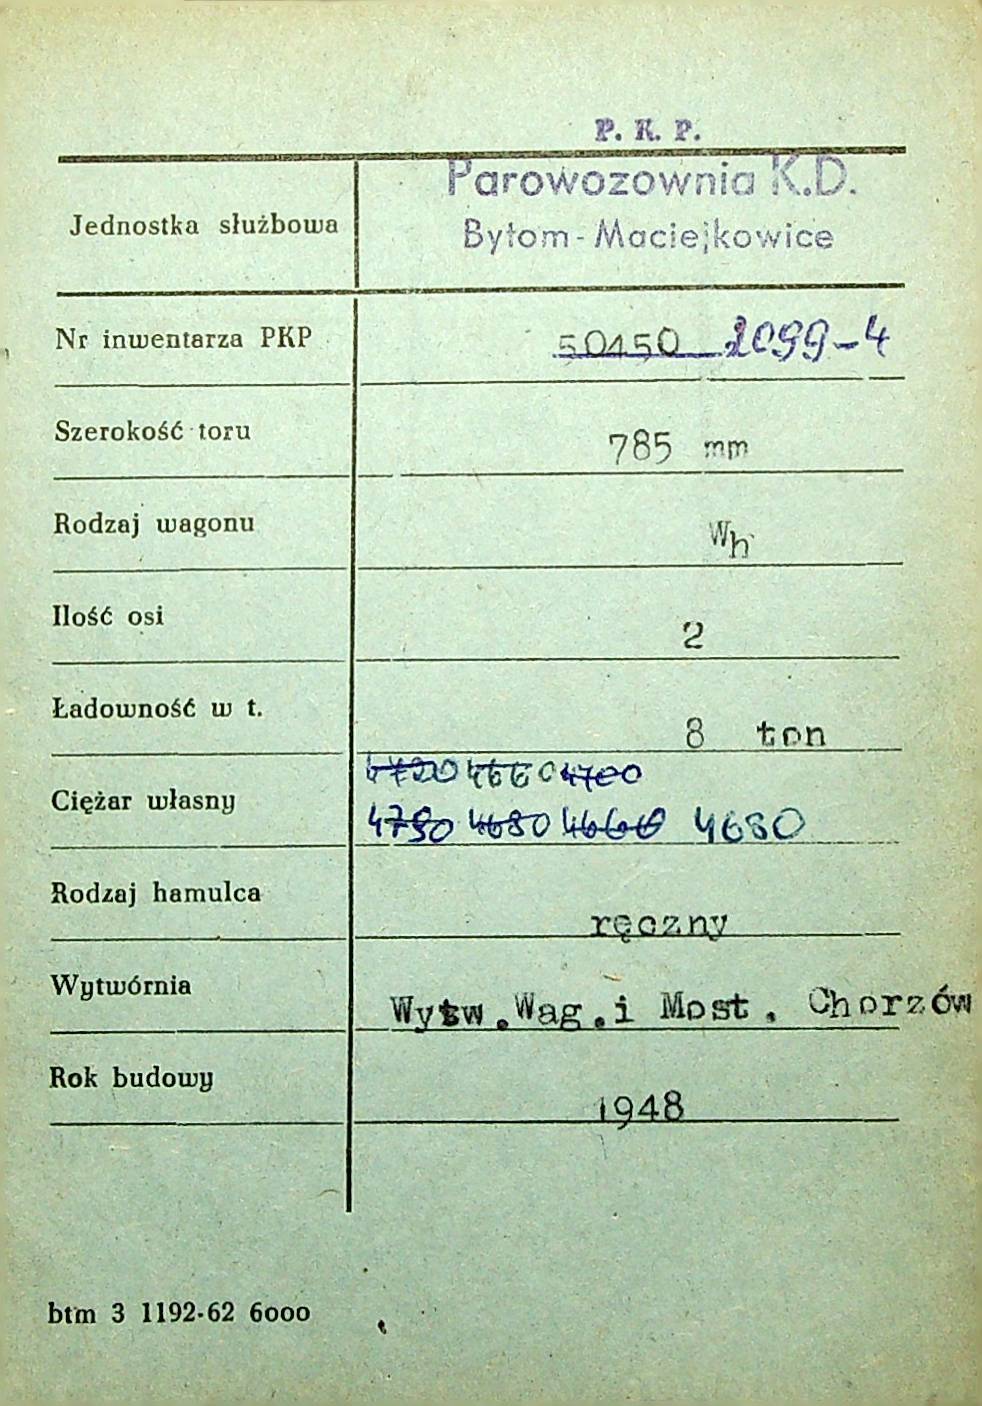 P. K. P.
Parowozownia K.D.
Jednostka służbowa
Bytom - Maciejkowice
Nr inwentarza PKP 50450 2099-4
Szerokość toru 785 mm
Rodzaj wagonu Wh
Ilość osi 2
Ładowność w t. 8 ton
4720 4660 4700
Ciężar własny 4790 4680 4660 4680
Rodzaj hamulca ręczny
Wytwórnia Wytw.Wag.i Most. Chorzów
Rok budowy 1948
btm 3 1192-62 6000